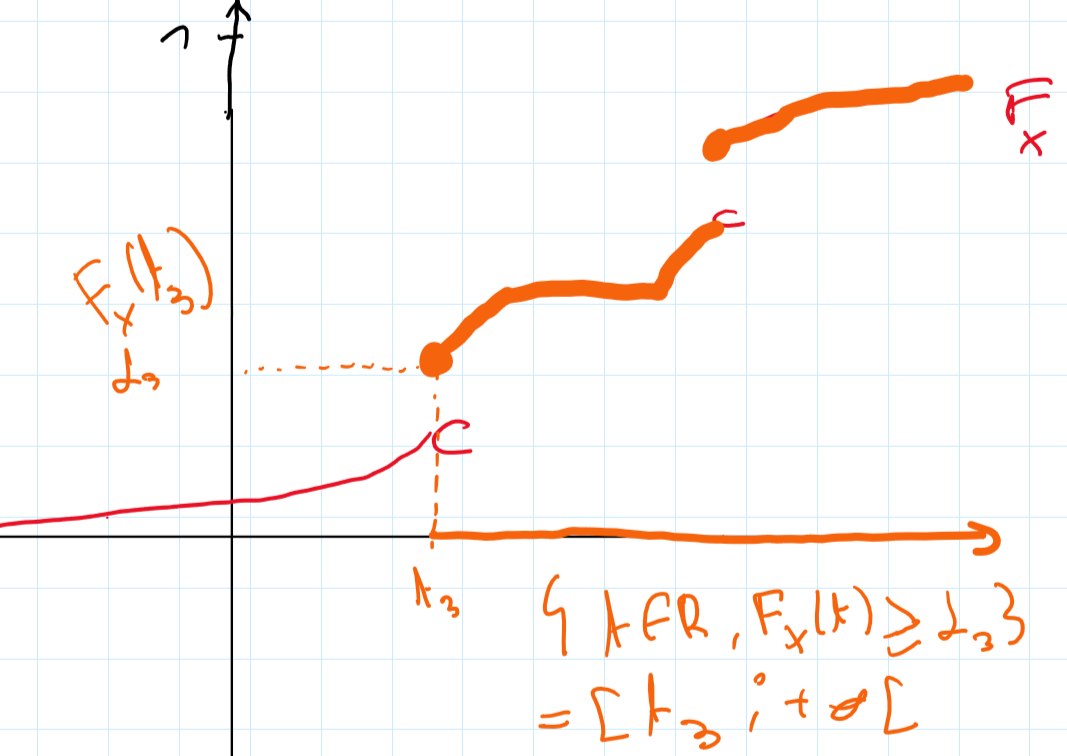 1
F_X
F_X(t_3)
α_3
t_3
{ t ∈ R, F_X(t) ≥ α_3 }
= [ t_3 ; +∞ [